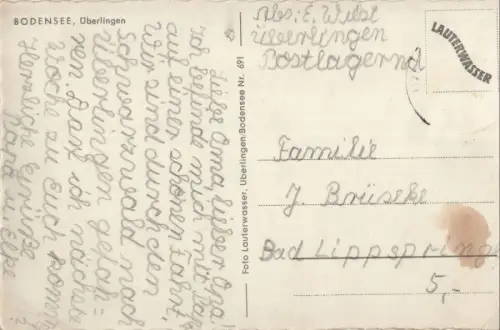 BODENSEE, Überlingen
Abs: E. Wübl
Überlingen
Postlagernd
LAUTERWASSER
Liebe Oma, lieber Opa!
Ich befinde mich mit Papa
auf einer schönen Fahrt,
Wir sind durch den
Schwarzwald nach
Überlingen gefah=
ren. Darf ich nächste
Woche zu Euch kommen?
Herzliche Grüße
Foto Lauterwasser, Überlingen/Bodensee Nr. 691
Familie
J. Brüseke
Bad Lippspringe
5,-